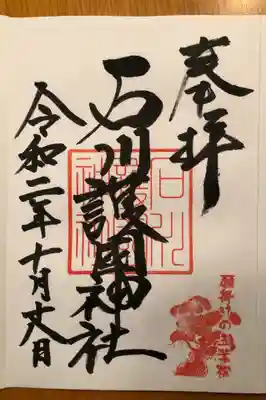 奉拝
石川護國神社
令和二年十月丈日